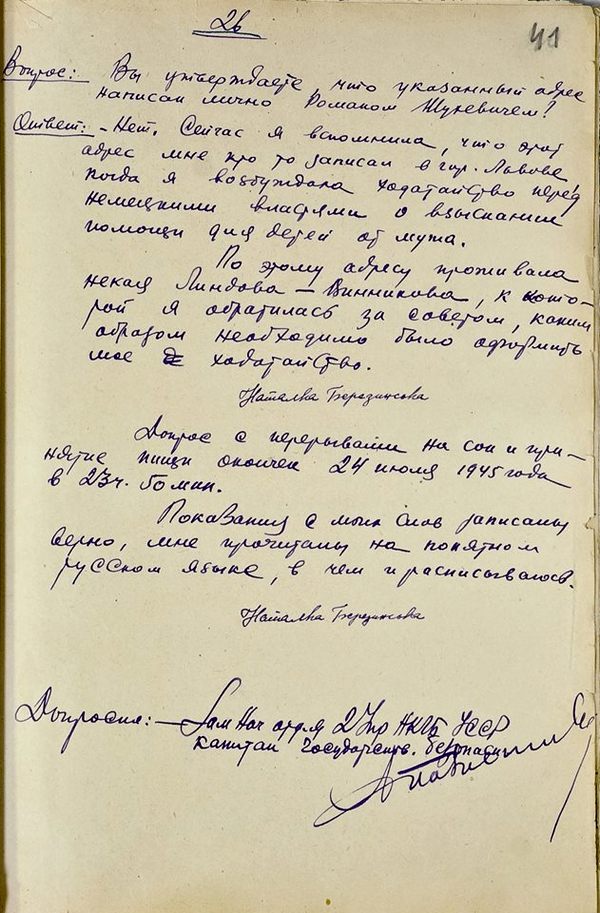 26
41
Вопрос: Вы утверждаете, что указанный адрес
написан лично Романом Шухевичем?
Ответ: - Нет. Сейчас я вспомнила, что этот
адрес мне кто то записал в гор. Львове
когда я возбуждала ходатайство перед
немецкими властями о взыскании
помощи для детей от мужа.
По этому адресу проживала
некая Линдова-Винникова, к кото-
рой я обратилась за советом, каким
образом необходимо было оформить
мое ходатайство.
Наталка Березинська
Допрос с перерывами на сон и при-
нятие пищи окончен 24 июля 1945 года
в 23ч. 50 мин.
Показания с моих слов записаны
верно, мне прочитаны на понятном
русском языке, в чем и расписываюсь.
Наталка Березинська
Допросил: - Зам Нач отдел 2 Упр НКГБ УССР
капитан государств. безопасн